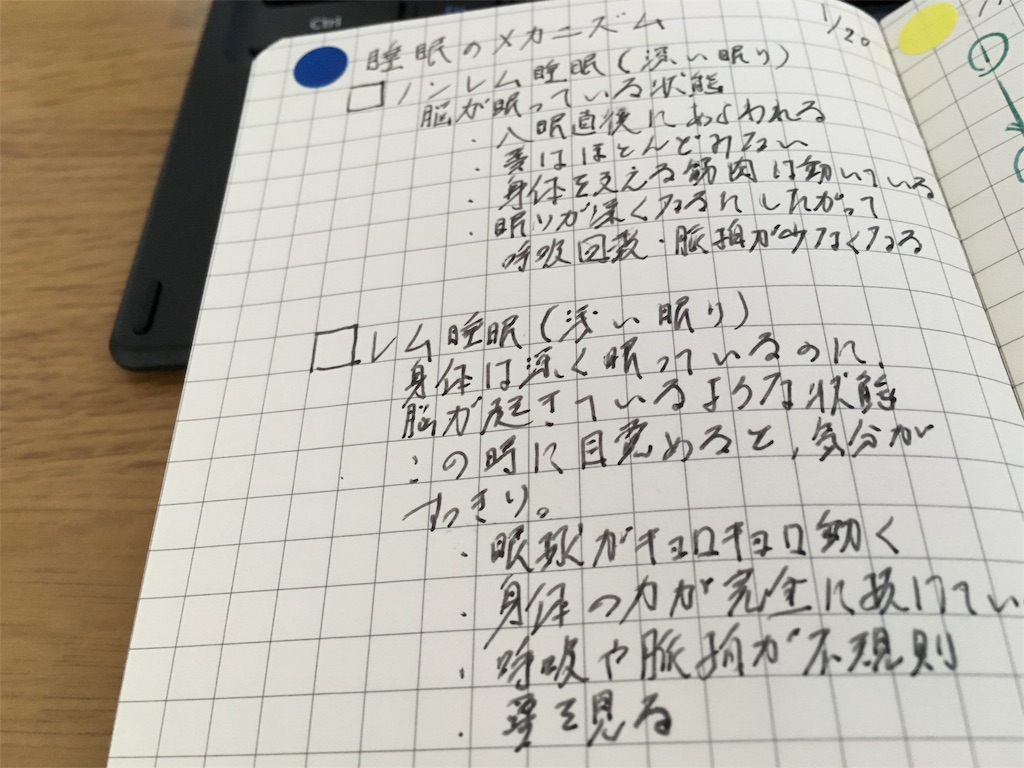 Ctrl
睡眠のメカニズム
1/20
ノンレム睡眠(深い眠り)
脳が眠っている状態
・入眠直後にあらわれる
・夢はほとんどみない
・身体を支える筋肉は働いている
・眠りが深くなるにしたがって
呼吸回数・脈拍が少なくなる
レム睡眠(浅い眠り)
身体は深く眠っているのに、
脳が起きているような状態
・この時に目覚めると、気分が
すっきり。
・眼球がキョロキョロ動く
・身体の力が完全に抜けてい
・呼吸や脈拍が不規則
・夢を見る
①